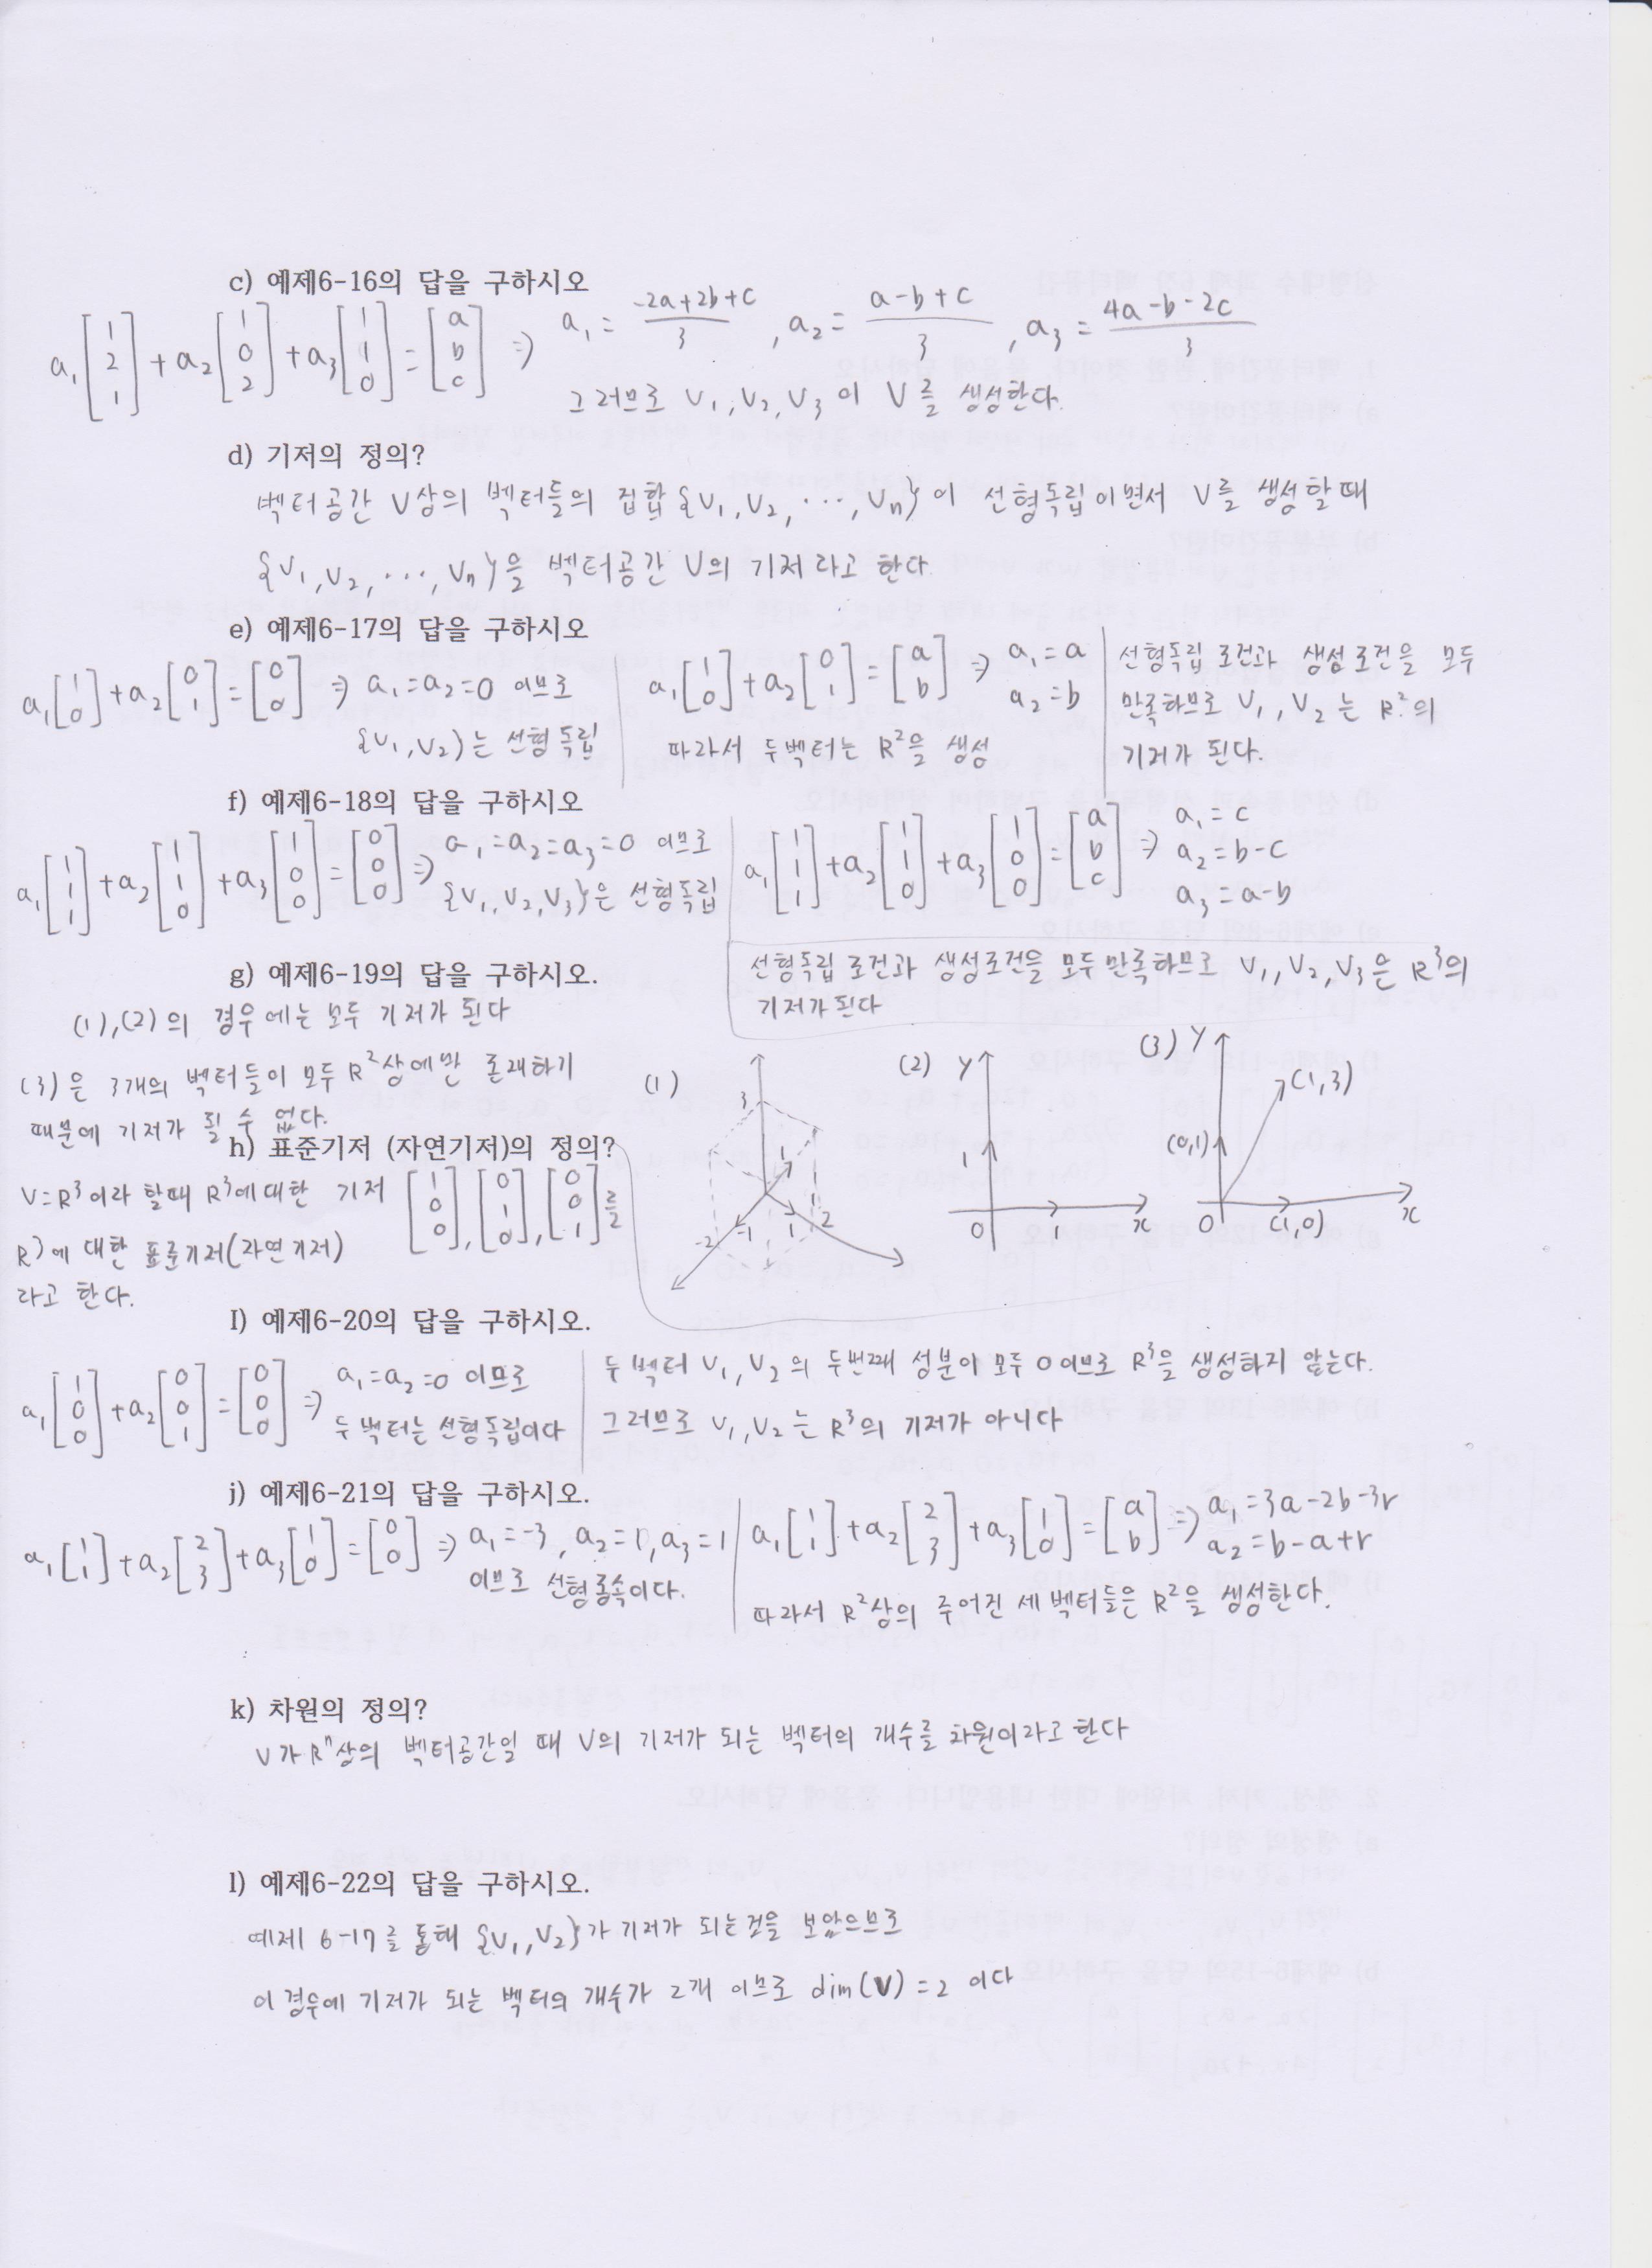 c) 예제6-16의 답을 구하시오
a₁[1 2 1] + a₂[1 0 2] + a₃[1 1 0] = [a b c] ⇒ a₁ = (-2a+2b+c)/3 , a₂ = (a-b+c)/3 , a₃ = (4a-b-2c)/3
그러므로 V₁, V₂, V₃ 이 V를 생성한다.
d) 기저의 정의?
벡터공간 V상의 벡터들의 집합 {V₁, V₂, ⋯, Vn}이 선형독립이면서 V를 생성할때
{V₁, V₂, ⋯, Vn}을 벡터공간 V의 기저라고 한다.
e) 예제6-17의 답을 구하시오
a₁[1 0] + a₂[0 1] = [0 0] ⇒ a₁=a₂=0 이므로
{V₁, V₂)는 선형독립
a₁[1 0] + a₂[0 1] = [a b] ⇒ a₁=a
a₂=b
따라서 두벡터는 R²을 생성
선형독립 조건과 생성조건을 모두
만족하므로 V₁, V₂ 는 R²의
기저가 된다.
f) 예제6-18의 답을 구하시오
a₁[1 1 1] + a₂[1 1 0] + a₃[1 0 0] = [0 0 0] ⇒ a₁=a₂=a₃=0 이므로
{V₁, V₂, V₃}은 선형독립
a₁[1 1 1] + a₂[1 1 0] + a₃[1 0 0] = [a b c] ⇒ a₁=c
a₂=b-c
a₃=a-b
선형독립 조건과 생성조건을 모두만족하므로 V₁, V₂, V₃은 R³의
기저가된다
g) 예제6-19의 답을 구하시오.
(1),(2)의 경우에는 모두 기저가 된다
(3)은 3개의 벡터들이 모두 R²상에만 존재하기
때문에 기저가 될 수 없다.
(1)
3
1
-2
-1
1
2
(2) Y
1
0
1
x
(3) Y
(1,3)
(0,1)
0
(1,0)
x
h) 표준기저 (자연기저)의 정의?
V=R³이라 할때 R³에대한 기저 [1 0 0], [0 1 0], [0 0 1]를
R³에 대한 표준기저(자연기저)
라고 한다.
I) 예제6-20의 답을 구하시오.
a₁[1 0 0] + a₂[0 0 1] = [0 0 0] ⇒ a₁=a₂=0 이므로
두 벡터는 선형독립이다
두 벡터 V₁, V₂ 의 두번째 성분이 모두 0이므로 R³을 생성하지 않는다.
그러므로 V₁, V₂ 는 R³의 기저가 아니다
j) 예제6-21의 답을 구하시오.
a₁[1 1] + a₂[2 3] + a₃[1 0] = [0 0] ⇒ a₁=-3, a₂=1, a₃=1
이므로 선형종속이다.
a₁[1 1] + a₂[2 3] + a₃[1 0] = [a b] ⇒ a₁=3a-2b-3r
a₂=b-a+r
따라서 R²상의 주어진 세 벡터들은 R²을 생성한다.
k) 차원의 정의?
V가 Rⁿ상의 벡터공간일 때 V의 기저가 되는 벡터의 개수를 차원이라고 한다
l) 예제6-22의 답을 구하시오.
예제 6-17를 통해 {V₁, V₂}가 기저가 되는것을 보았으므로
이 경우에 기저가 되는 벡터의 개수가 2개 이므로 dim(V)=2 이다